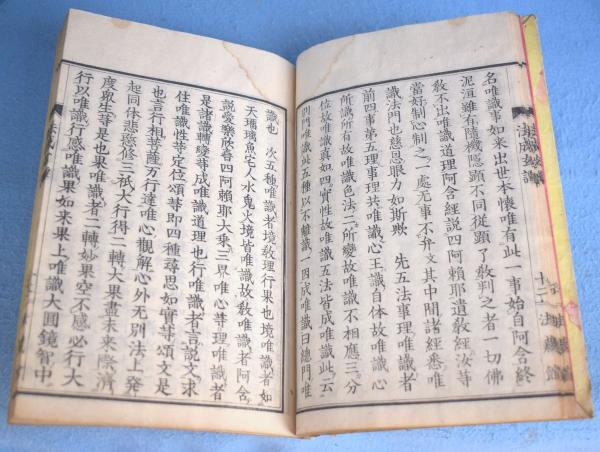 名唯識事如来出世本懷唯有此一事始自阿含終
泥洹雖有隨機隱顯不同從顯了教判之者一切佛
教不出唯識道理阿含經說四阿賴耶遺教經汝等
當好制心制之一處无事不弁文其中間諸經悉唯
識法門也慈恩眼力如斯歟 先五法事理唯識者
前四事第五理事理共唯識心王識自体故唯識心
所識所有故唯識色法二所變故唯識不相應三分
位故唯識真如四實性故唯識五法皆成唯識此云
別門唯識此五種以不離識一因成唯識曰總門唯
識也 次五種唯識者境教理行果也境唯識者如
天瑠璃魚宅人水鬼火境皆唯識故教唯識者阿含
說愛樂欣喜四阿賴耶大乘三界唯心等理唯識者
是諸識轉變等成唯識道理也行唯識者言說文求
住唯識性等定位頌等即四種尋思如實等頌文是
也言行相菩薩万行達唯心觀解心外无別法上發
起同体悲愍修三祇大行得二轉大果盡未來際濟
度衆生等是也果唯識者二轉妙果空不感必行大
行以唯識行感唯識果如来果上唯識大圓鏡智中